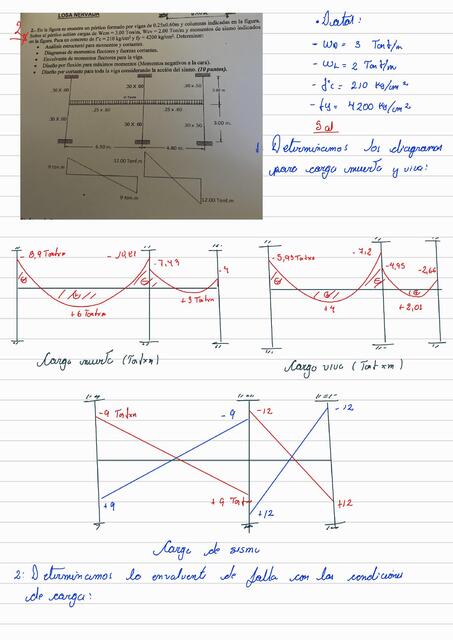 LOSA NERVADA
2.- En la figura se muestra un pórtico formado por vigas de 0.25x0.60m y columnas indicadas en la figura.
Sobre el pórtico actúan cargas de Wcm = 3.00 Ton/m, Wcv = 2.00 Ton/m y momentos de sismo indicados
en la figura. Para un concreto de f'c = 210 kg/cm² y fy = 4200 kg/cm². Determinar:
• Análisis estructural para momentos y cortantes.
• Diagramas de momentos flectores y fuerzas cortantes.
• Envolvente de momentos flectores para la viga.
• Diseño por flexión para máximos momentos (Momentos negativos a la cara).
• Diseño por cortante para toda la viga considerando la acción del sismo. (10 puntos).
30 X 60
30 X 60
30 x 50
.25 x .60
.25 x .60
30 X 60
30 X 60
30 x 50
3.00 m.
6.50 m.
4.80 m.
12.00 Tonf.m
9 ton.m
9 ton.m
12.00 Tonf.m
• Datos:
- WD = 3 Tonf/m
- WL = 2 Tonf/m
- f'c = 210 Kg/cm²
- fy = 4200 kg/cm²
Sol
1. Determinamos los diagramas
para carga muerta y viva:
-8,9 Tonfxm
-7,43
-4
+6 Tonfxm
+3 Tonfxm
Carga muerta (Tonfxm)
-5,93 Tonfxm
-7,2
-4,95
-2,66
+4
+2,01
Carga viva (Tonfxm)
-9 Tonfxm
-9
-12
-12
+9
+9 Tonfxm
+12
+12
Carga de sismo
2: Determinamos la envolvente de falla con las condiciones
de carga: